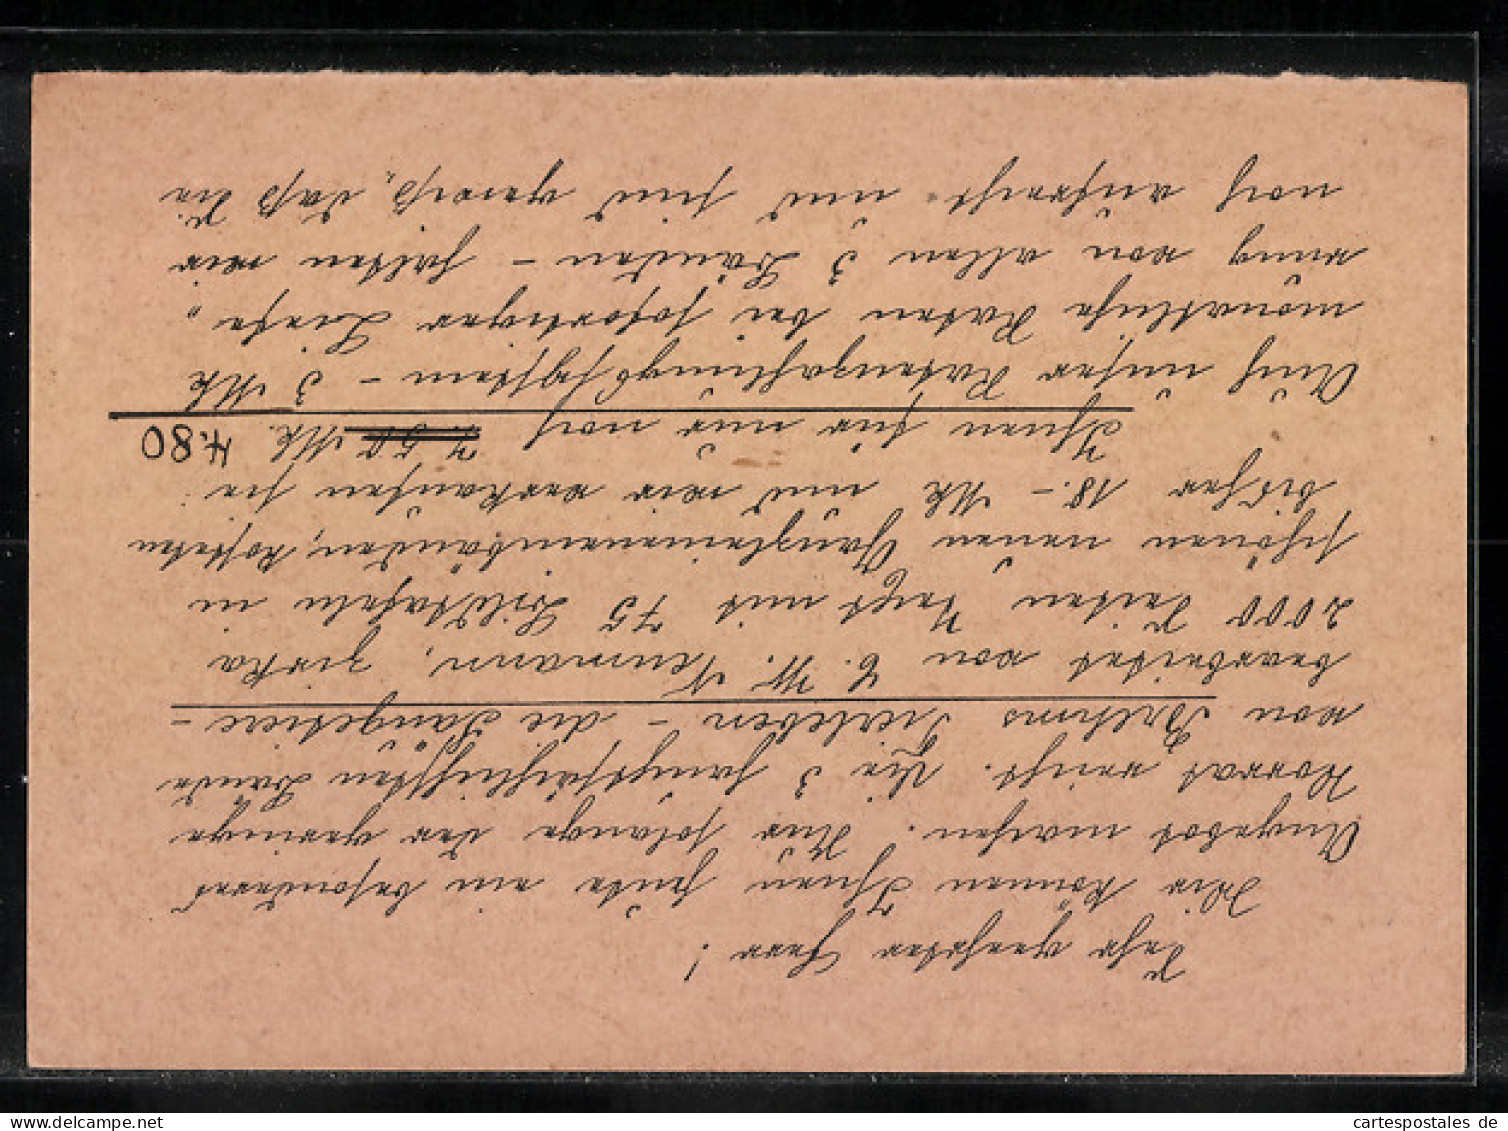 Sehr geehrter Herr!
Wir können Ihnen heute ein besonderes
Angebot machen. Nur solange der geringe
Vorrat reicht. Die 3 hauptsächlichsten Bände
von Brehms Tierleben – die Säugetiere –
bearbeitet von C. W. Neumann, zirka
2000 Seiten Text mit 75 Bildtafeln in
schönen neuen Ganzleinenbänden, kosteten
bisher 18.– Mk und wir verkaufen sie
Ihnen für nur noch 7.50 Mk. 4.80
Auch unser Ratenzahlungssystem – 3 Mk
monatliche Raten bei sofortiger Liefe„
rung von allen 3 Bänden – halten wir
noch aufrecht und sind gewiß, daß die
cartespostales de